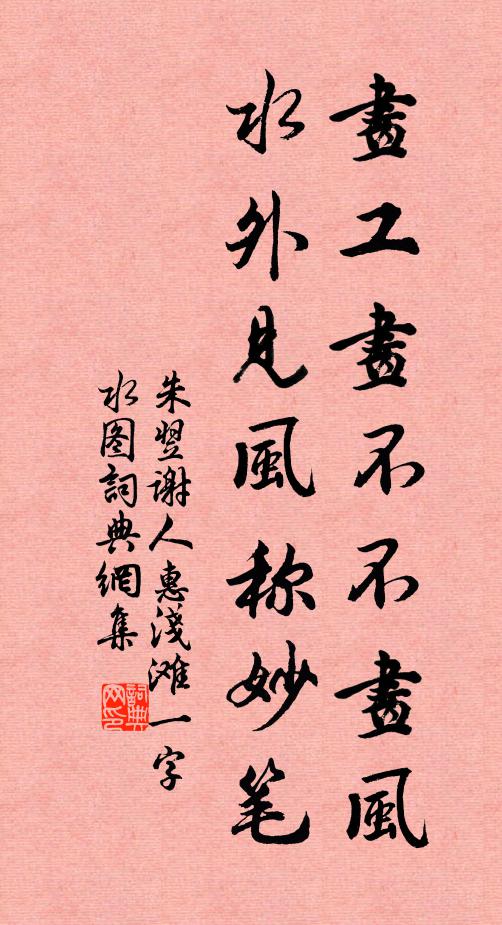 畫工畫不不畫風
水外見風称妙笔
朱翌謝人惠淺滩一字
水图詞典網集
詞典网印